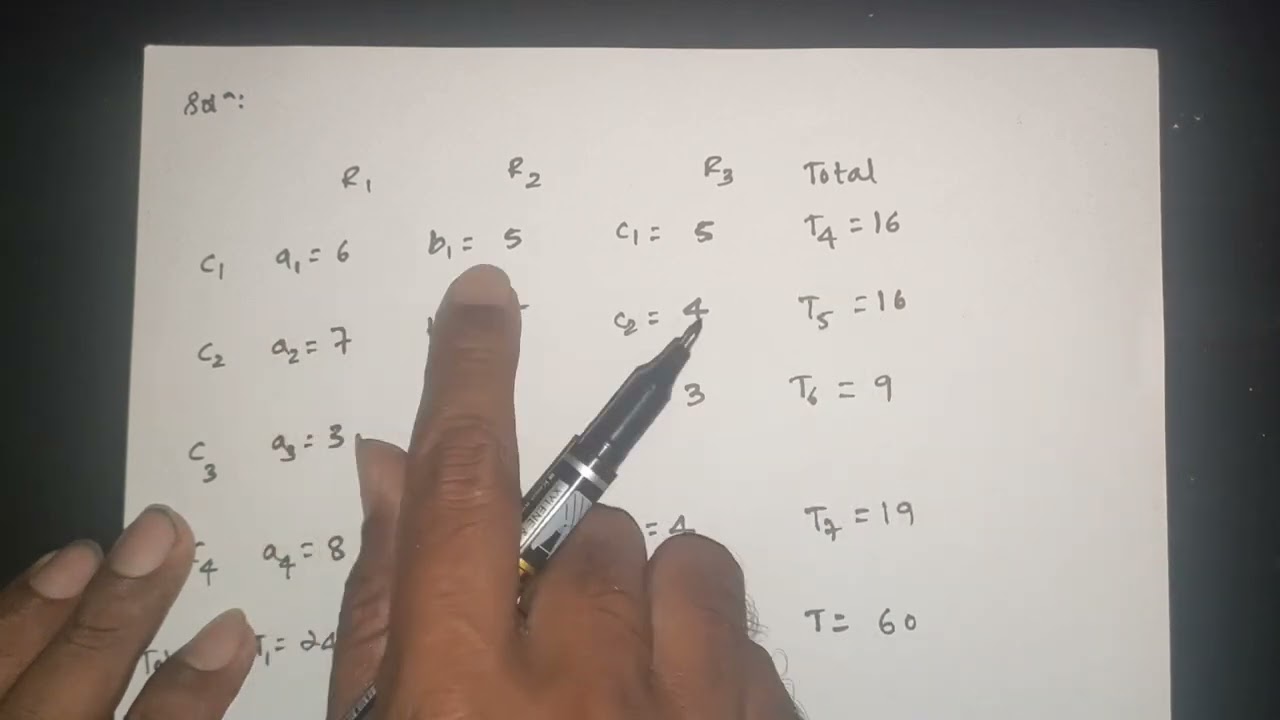 Solⁿ:
R₁ R₂ R₃ Total
C₁ a₁ = 6 b₁ = 5 C₁ = 5 T₄ = 16
C₂ a₂ = 7 C₂ = 4 T₅ = 16
C₃ a₃ = 3 3 T₆ = 9
a₄ = 8 = 4 T₇ = 19
T₁ = 24 T = 60